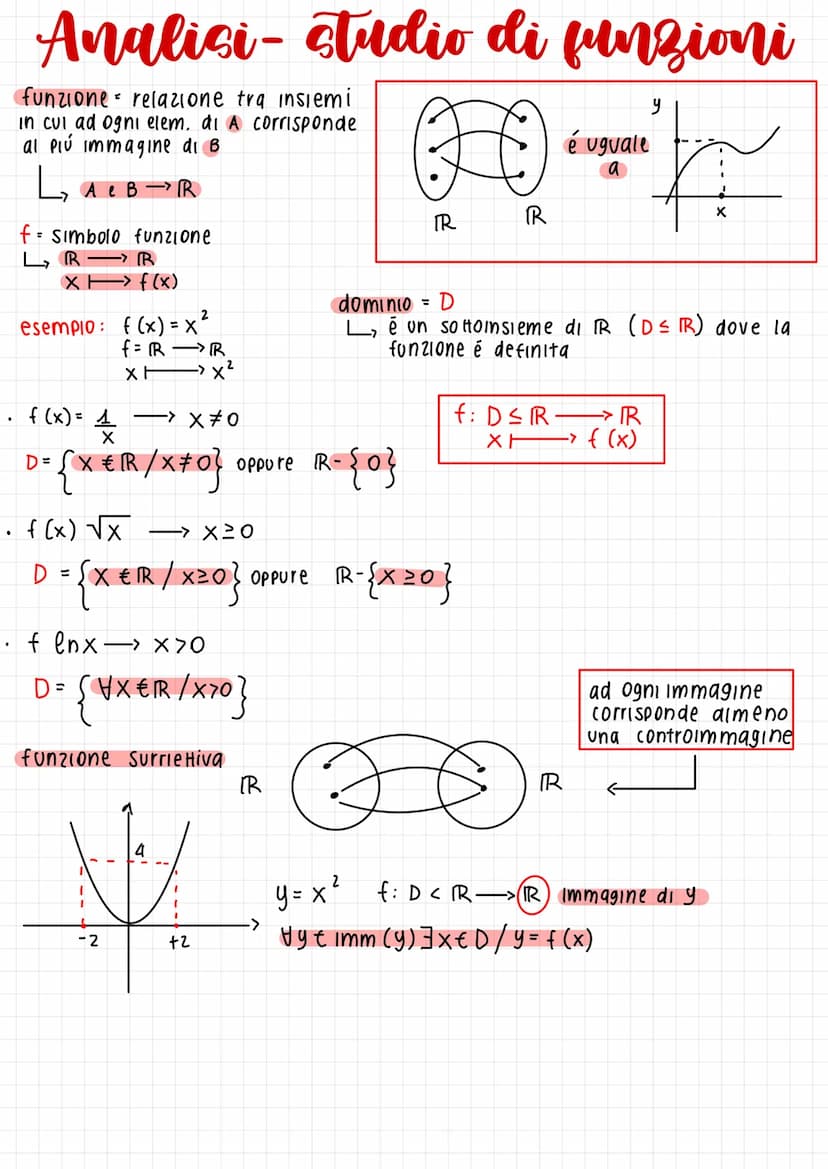 Analisi - studio di funzioni
funzione = relazione tra insiemi
in cui ad ogni elem. di A corrisponde
al più immagine di B
A e B → ℝ
é uguale
a
ℝ
ℝ
y
x
f = simbolo funzione
ℝ ⟶ ℝ
x ⟼ f(x)
esempio: f(x) = x²
f = ℝ ⟶ ℝ
x ⟼ x²
dominio = D
é un sottoinsieme di ℝ (D ≤ ℝ) dove la
funzione é definita
f: D ≤ ℝ ⟶ ℝ
x ⟼ f(x)
· f(x) = 1/x ⟶ x ≠ 0
D = {x € ℝ / x ≠ 0} oppure ℝ - {0}
· f(x) √x ⟶ x ≥ 0
D = {x € ℝ / x ≥ 0} oppure ℝ - {x ≥ 0}
· f lnx ⟶ x > 0
D = {∀x € ℝ / x > 0}
ad ogni immagine
corrisponde almeno
una controimmagine
funzione surriettiva
ℝ
ℝ
4
-2
+2
y = x² f: D < ℝ ⟶ ℝ immagine di y
∀y € imm (y) ∃x € D / y = f(x)